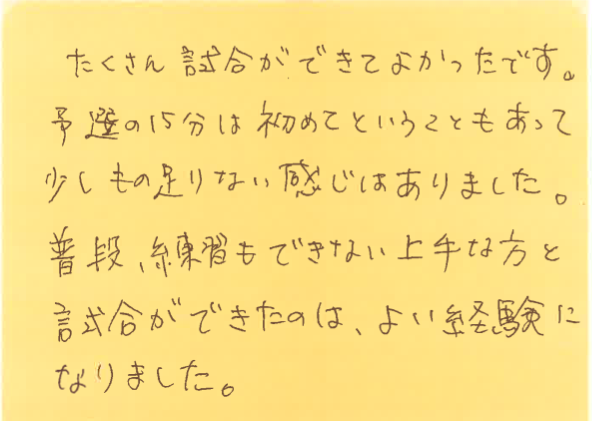 たくさん試合ができてよかったです。
予選の15分は初めてということもあって
少しもの足りない感じはありました。
普段、練習もできない上手な方と
試合ができたのは、よい経験に
なりました。